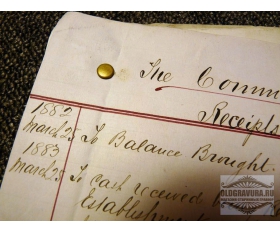 The Comm
Receipts
1882
March 25 To Balance Brought
1883
March 25 To Cash received
Establishment
OLDGRAVURA.RU